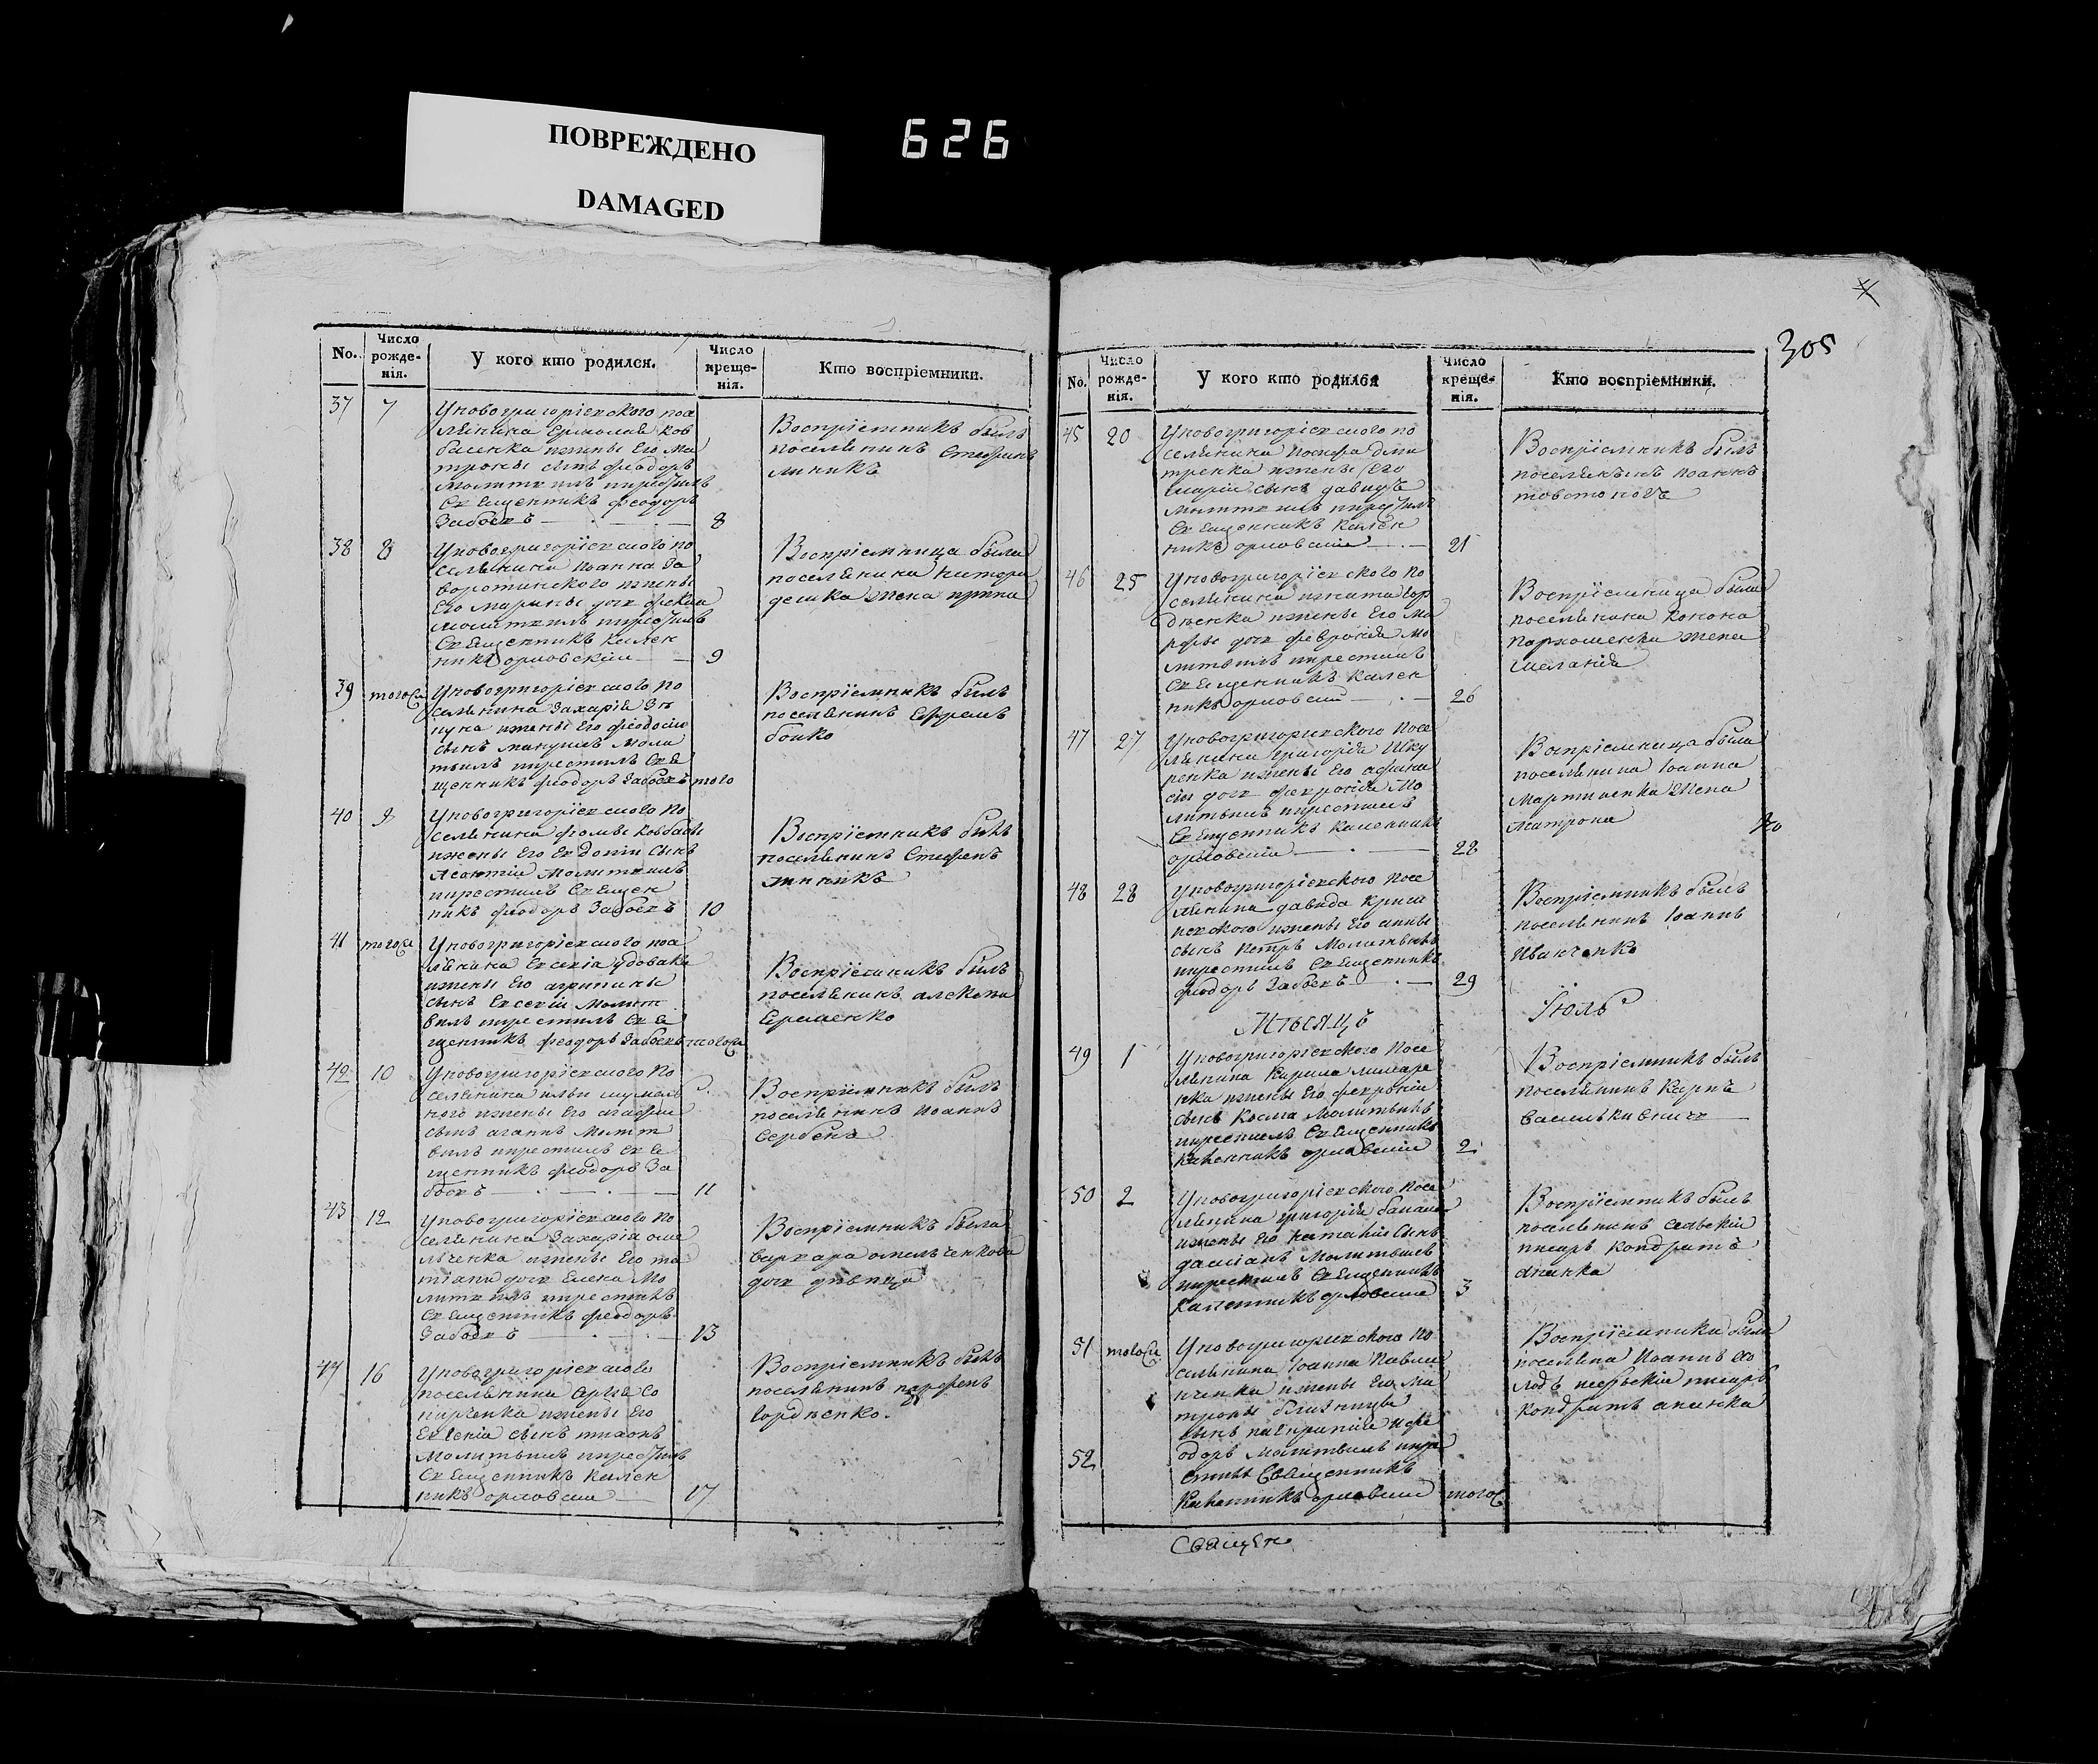 ПОВРЕЖДЕНО
DAMAGED
626
305
No.
Число рожде-нія.
У кого кто родился.
Число креще-нія.
Кто воспріемники.
37 7
Уновогригоріевского посе
лянина Ермолая Ков
баенка ижены Его Ма
троны сынъ феодоръ
Молитвилъ икрестилъ
Священникъ феодоръ
Забоевъ 8
Воспріемникъ былъ
поселянинъ Стефанъ
линикъ
38 8
Уновогригоріевского по
селянина Иоанна За
воротинского ижены
Его Марины дочь фекла
молитвилъ икрестилъ
Священникъ Кален
никъ орловскій 9
Воспріемница была
поселянина
жена ирина
39 тогожъ
Уновогригоріевского по
селянина Захарія
ижены Его феодосіи
сынъ мануилъ Моли
твилъ икрестилъ Свя
щенникъ феодоръ Забоевъ того
Воспріемникъ былъ
поселянинъ Ефремъ
бойко
40 9
Уновогригоріевского по
селянина фомы Ковбасы
ижены Его Евдокіи сынъ
Леонтій Молитвилъ
икрестилъ Священ
никъ феодоръ Забоевъ 10
Воспріемникъ былъ
поселянинъ Стефанъ
линникъ
41 тогожъ
Уновогригоріевского посе
лянина Евсевія удовика
ижены Его агрипины
сынъ Евсевій Молит
вилъ икрестилъ Свя
щенникъ феодоръ Забоевъ тогожъ
Воспріемникъ былъ
поселянинъ алексій
Ермаенко
42 10
Уновогригоріевского по
селянина ильи шумей
ного ижены Его агафіи
сынъ агапъ Молит
вилъ икрестилъ Свя
щенникъ феодоръ За
боевъ 11
Воспріемникъ былъ
поселянинъ Иоаннъ
Сербенъ
43 12
Уновогригоріевского по
селянина Захарія оме
льченка ижены Его та
тіаны дочь Елена Мо
литвилъ икрестилъ
Священникъ феодоръ
Забоевъ 13
Воспріемникъ была
варвара омельченкова
дочь дѣвица
44 16
Уновогригоріевского
поселянина Сергія Со
ижены Его
Евгенія сынъ тихонъ
Молитвилъ икрестилъ
Священникъ Кален
никъ орловскій 17
Воспріемникъ былъ
поселянинъ парфенъ
Гордѣенко.
No.
Число рожде-нія.
У кого кто родился
Число креще-нія.
Кто воспріемники.
45 20
Уновогригоріевского по
селянина Иосифа Дми
тренка ижены Его
Маріи сынъ давидъ
Молитвилъ икрестилъ
Священникъ Кален
никъ орловскій 21
Воспріемникъ былъ
поселянинъ Иоаннъ
46 25
Уновогригоріевского по
селянина игната Гор
дѣенка ижены Его Ма
рфы дочь февронія Мо
литвилъ икрестилъ
Священникъ Кален
никъ орловскій 26
Воспріемница была
поселянина Конона
пархоменка жена
Меланія
47 27
Уновогригоріевского посе
лянина григорія Шку
ренка ижены Его афана
сіи дочь февронія Мо
литвилъ икрестилъ
Священникъ Каленникъ
орловскій 28
Воспріемница была
поселянина Іоанна
Мартиненка жена
Матрона
48 28
Уновогригоріевского посе
лянина давида Криш
невского ижены Его анны
сынъ петръ Молитвилъ
икрестилъ Священникъ
феодоръ Забоевъ 29
Воспріемникъ былъ
поселянинъ Іоаннъ
Иванченко
Мѣсяцъ Іюль
49 1
Уновогригоріевского посе
лянина Кирила лимаре
нка ижены Его февроніи
сынъ Косма Молитвилъ
икрестилъ Священникъ
Каленникъ орловскій 2
Воспріемникъ былъ
поселянинъ Карпъ
50 2
Уновогригоріевского посе
лянина григорія
ижены Его наталіи сынъ
даміанъ Молитвилъ
икрестилъ Священникъ
Каленникъ орловскій 3
Воспріемникъ былъ
поселянинъ Сельскій
писарь Кондратъ
апанка
51 тогожъ
Уновогригоріевского по
селянина Іоанна Павли
ченка ижены Его Ма
троны близнецы
сынъ и фе
52
одоръ молитвилъ икре
стилъ Священникъ
Каленникъ орловскій тогожъ
Воспріемники были
поселяна Иоаннъ
сельскій писарь
Кондратъ апанка
Священ